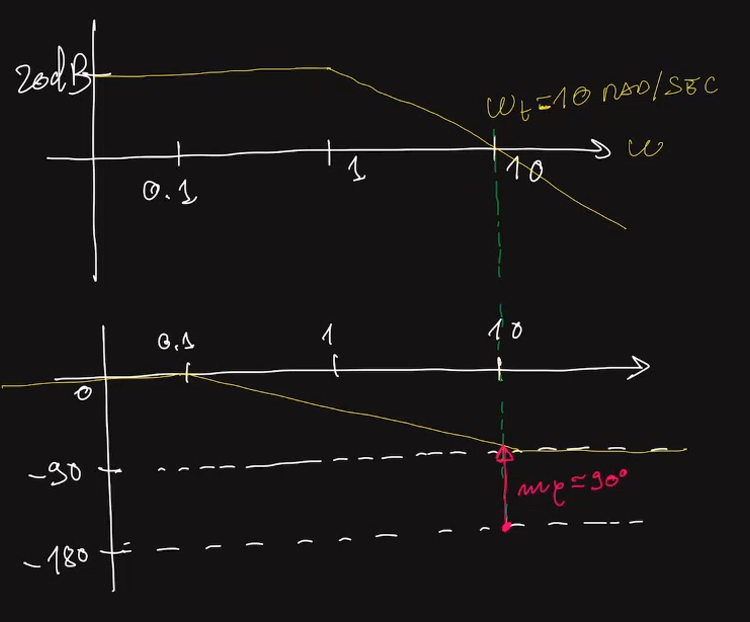 20dB
ω_t=10 RAD/SEC
ω
0.1
1
10
0.1
1
10
0
-90
mφ≃90°
-180